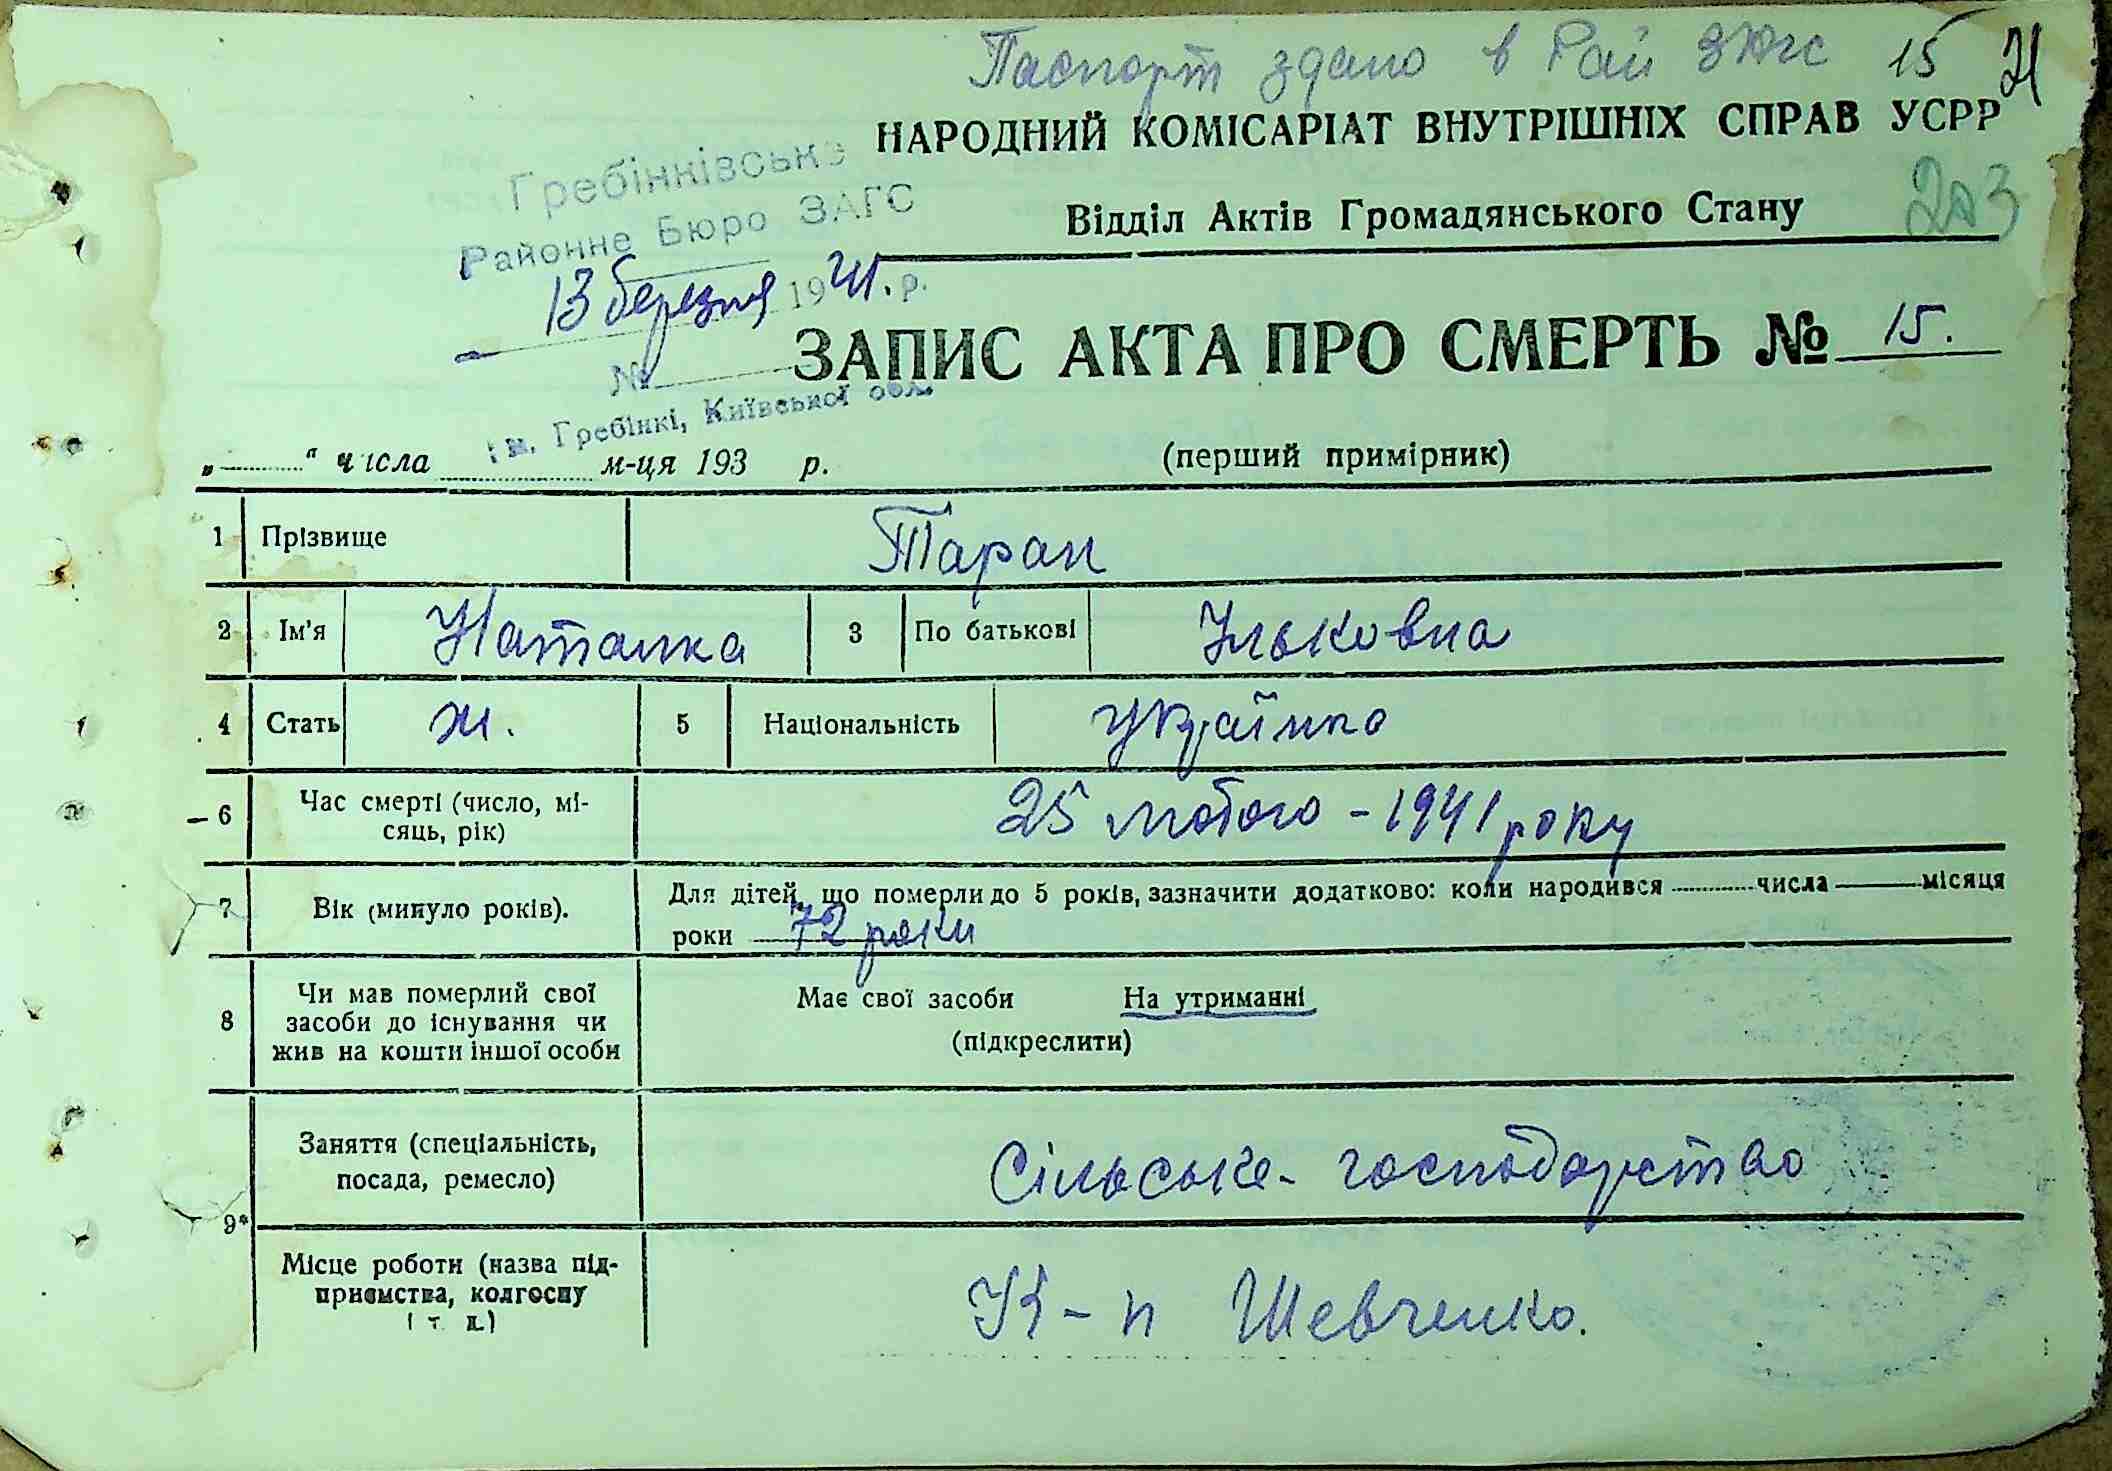 Паспорт здано в Рай ЗАГС 15 21
НАРОДНИЙ КОМІСАРІАТ ВНУТРІШНІХ СПРАВ УСРР
Відділ Актів Громадянського Стану 203
Гребінківське
Районне Бюро ЗАГС
13 березня 1941. р.
№
м. Гребінкі, Київської обл.
ЗАПИС АКТА ПРО СМЕРТЬ № 15.
„ “ числа м-ця 193 р. (перший примірник)
1 Прізвище Таран
2 Ім'я Наталка 3 По батькові Ільковна
4 Стать ж. 5 Національність Українка
6 Час смерті (число, мі-
сяць, рік) 25 лютого - 1941 року
7 Вік (минуло років). Для дітей, що померли до 5 років, зазначити додатково: коли народився числа місяця
роки 72 роки
8 Чи мав померлий свої
засоби до існування чи
жив на кошти іншої особи
Має свої засоби На утриманні
(підкреслити)
9* Заняття (спеціальність,
посада, ремесло) Сільське-господарство
Місце роботи (назва під-
приємства, колгоспу
і т. д.) К-п Шевченко.